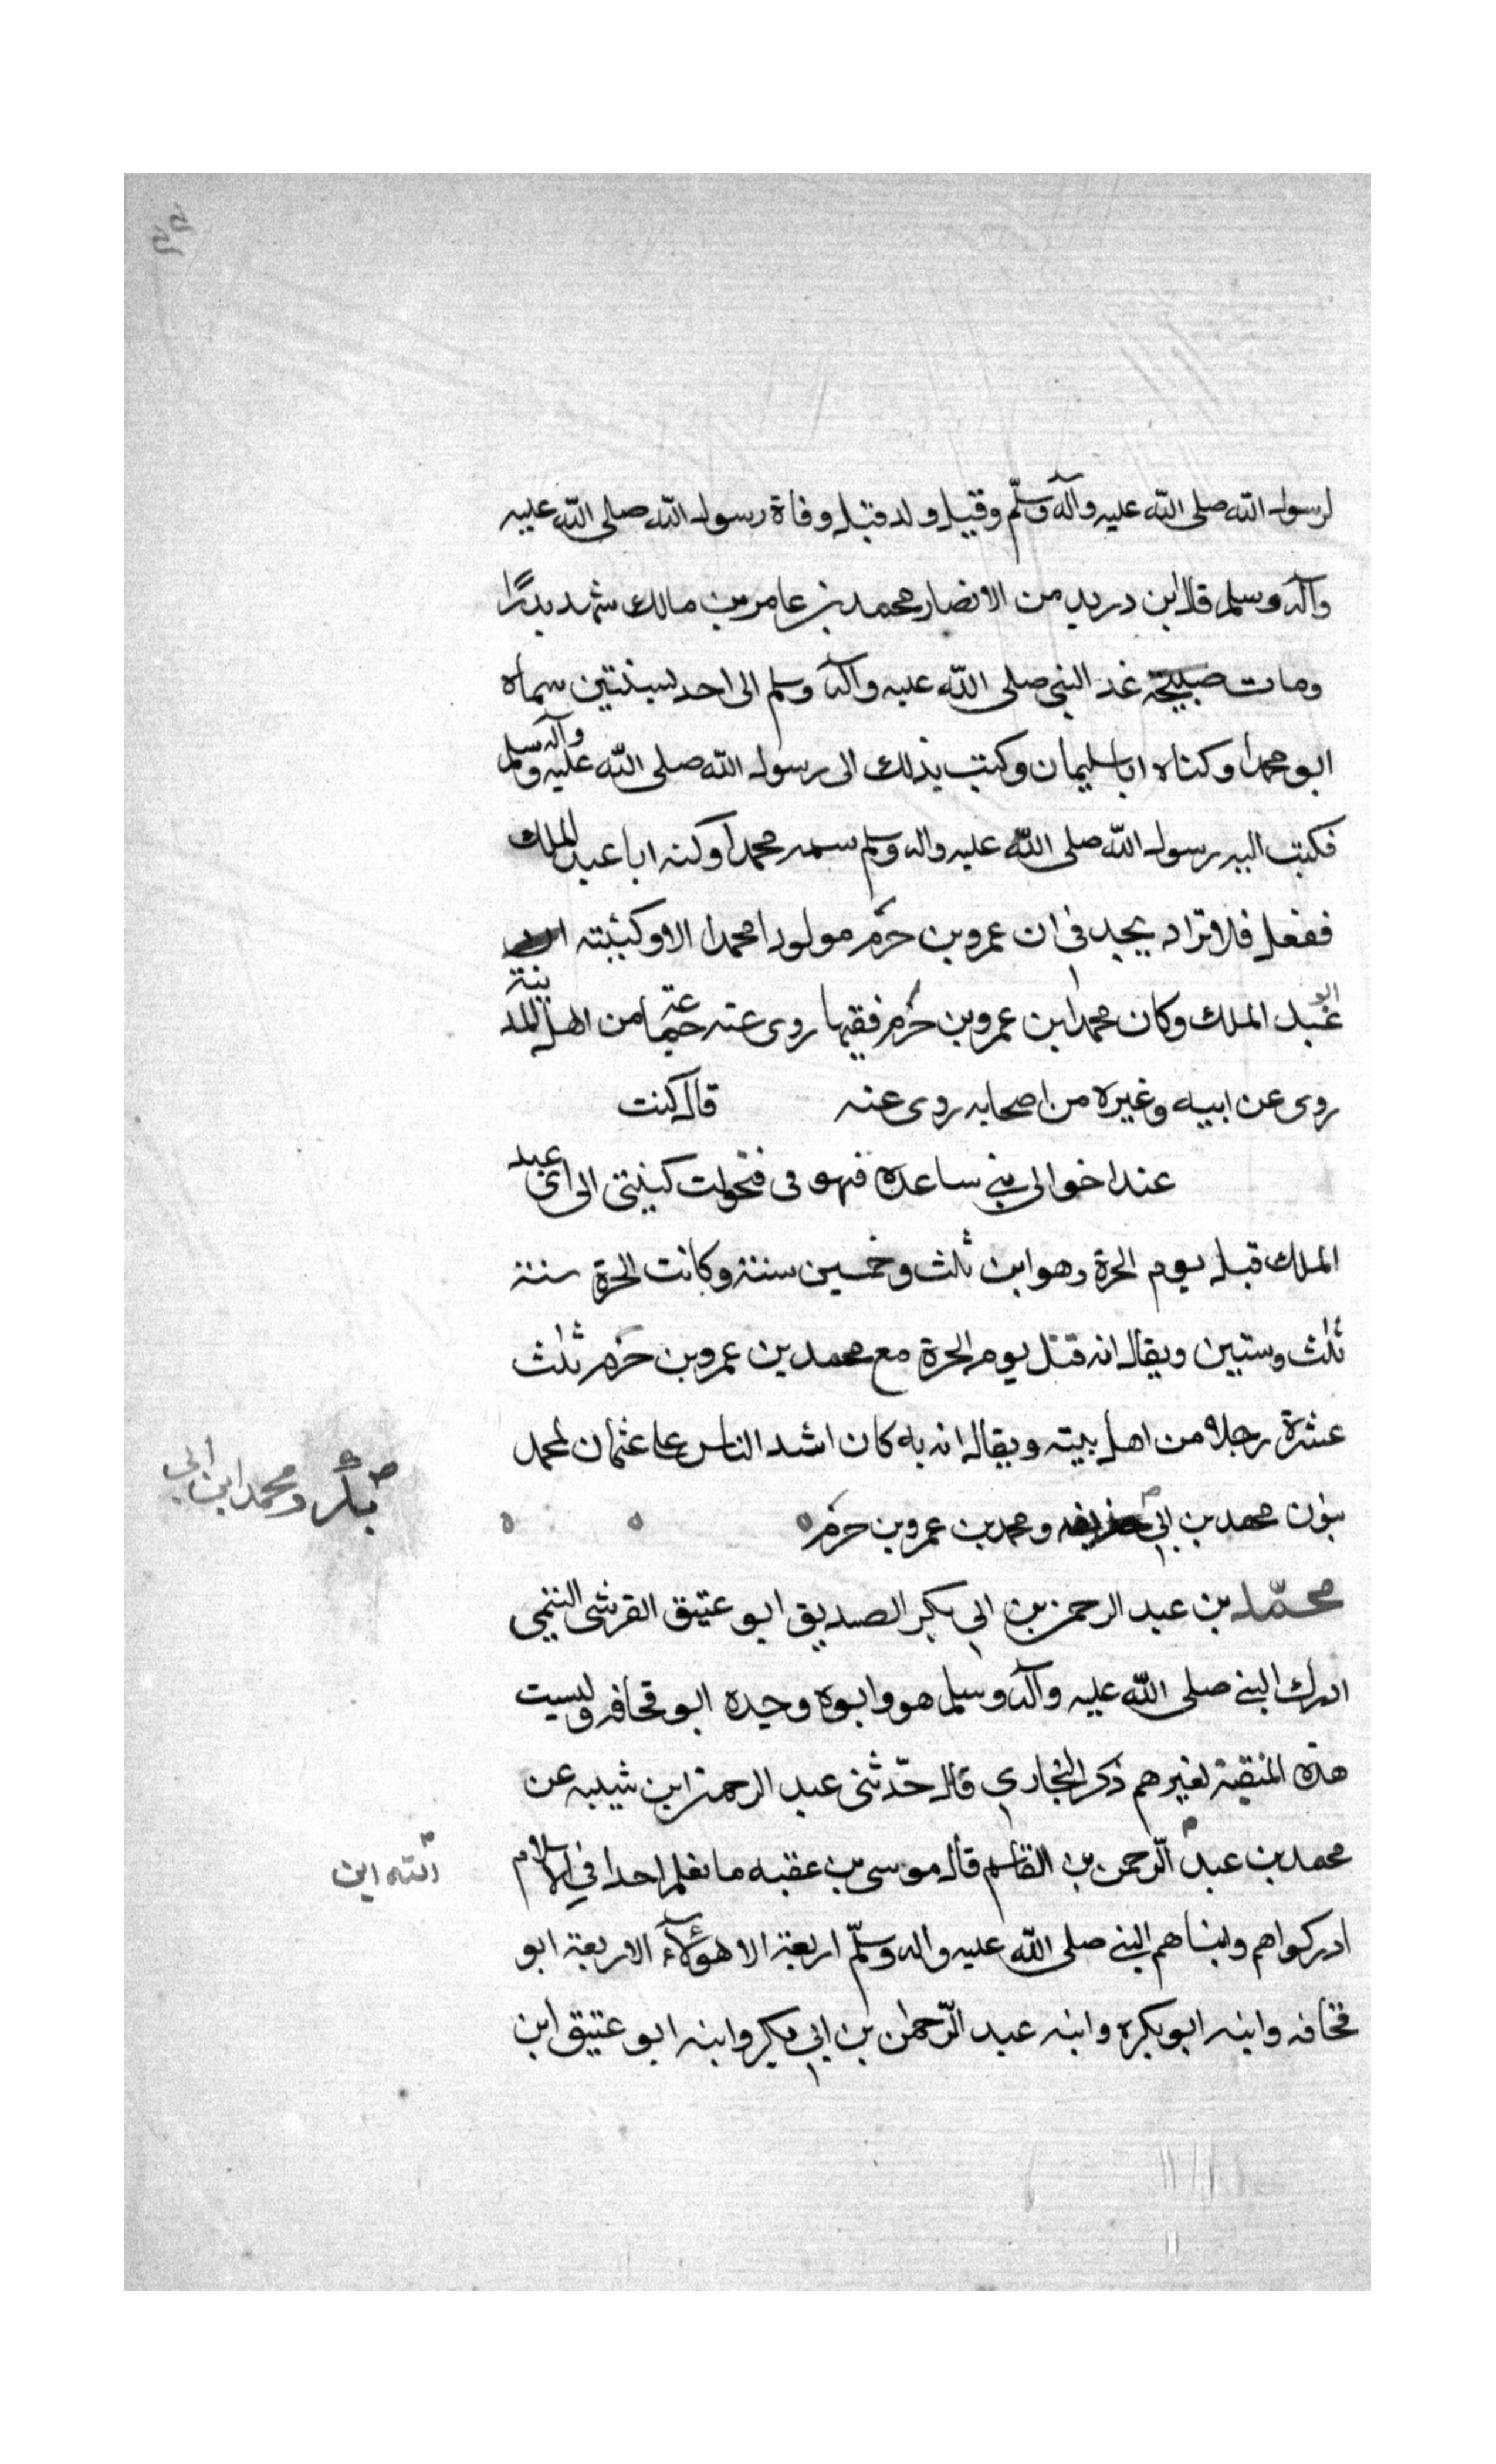 لرسول الله صلى الله عليه وآله وسلّم وقيل ولد قبل وفاة رسول الله صلى الله عليه
وآله وسلم قال ابن دريد من الانصار محمد بن عامر بن مالك شهد بدرًا
ومات صبيحة غد النبي صلى الله عليه وآله وسلم الى احد لسنتين سماه
ابو محمدا وكناه ابا سليمان وكتب بذلك الى رسول الله صلى الله عليه وآله وسلم
فكتب اليه رسول الله صلى الله عليه واله وسلم سمه محمدا وكنه ابا عبد الملك
ففعل فلا تزاد يجد في ان عمرو بن حزم مولودا محمدا الا وكنيته
ابو عبد الملك وكان محمد ابن عمرو بن حزم فقيها روى عنه من اهل المدينة
روى عن ابيه وغيره من اصحابه روى عنه قال كنت
عند اخوالى بني ساعده فتحولت كنيتى الى ابى عبد
الملك قبل يوم الحرة وهو ابن ثلث وخمسين سنة وكانت الحرة سنة
ثلث وستين ويقال انه قتل يوم الحرة مع محمد بن عمرو بن حزم ثلث
عشرة رجلا من اهل بيته ويقال انه به كان اشد الناس على عثمان لمحمد
بنون محمد بن ابي ومحمد بن عمرو بن حزم
بكر ومحمد ابن ابي
محمّد بن عبد الرحمن بن ابي بكر الصديق ابو عتيق القرشى التيمي
ادرك النبي صلى الله عليه وآله وسلم هو وابوه وجده ابو قحافه وليست
هذه المنقبة لغيرهم ذكر البخاري قال حدّثنى عبد الرحمن ابن شيبه عن
محمد بن عبد الرحمن بن القاسم قال موسى بن عقبه ما نعلم احدا في الاسلام
الله ابن
ادركوا هم وابناهم النبي صلى الله عليه واله وسلّم اربعة الا هؤلاء الاربعة ابو
قحافه وابنه ابو بكره وابنه عبد الرّحمن بن ابي بكر وابنه ابو عتيق ابن